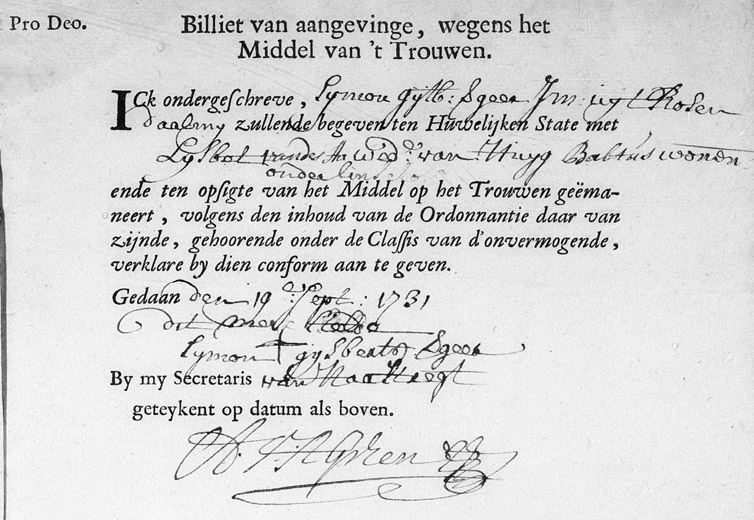 Pro Deo.
Billiet van aangevinge, wegens het
Middel van 't Trouwen.
ICk ondergeschreve, Symon gysb: Sgeer Jm: uyt Rosen
daal my zullende begeven ten Huwelijken State met
Lysbet van wed:e van Huyg wonen
onder
ende ten opsigte van het Middel op het Trouwen geëma-
neert, volgens den inhoud van de Ordonnantie daar van
zijnde, gehoorende onder de Classis van d'onvermogende,
verklare by dien conform aan te geven.
Gedaan den 19:e Sept: 1731
dit merk
Symon † gysberts Sgeer
By my Secretaris van
geteykent op datum als boven.